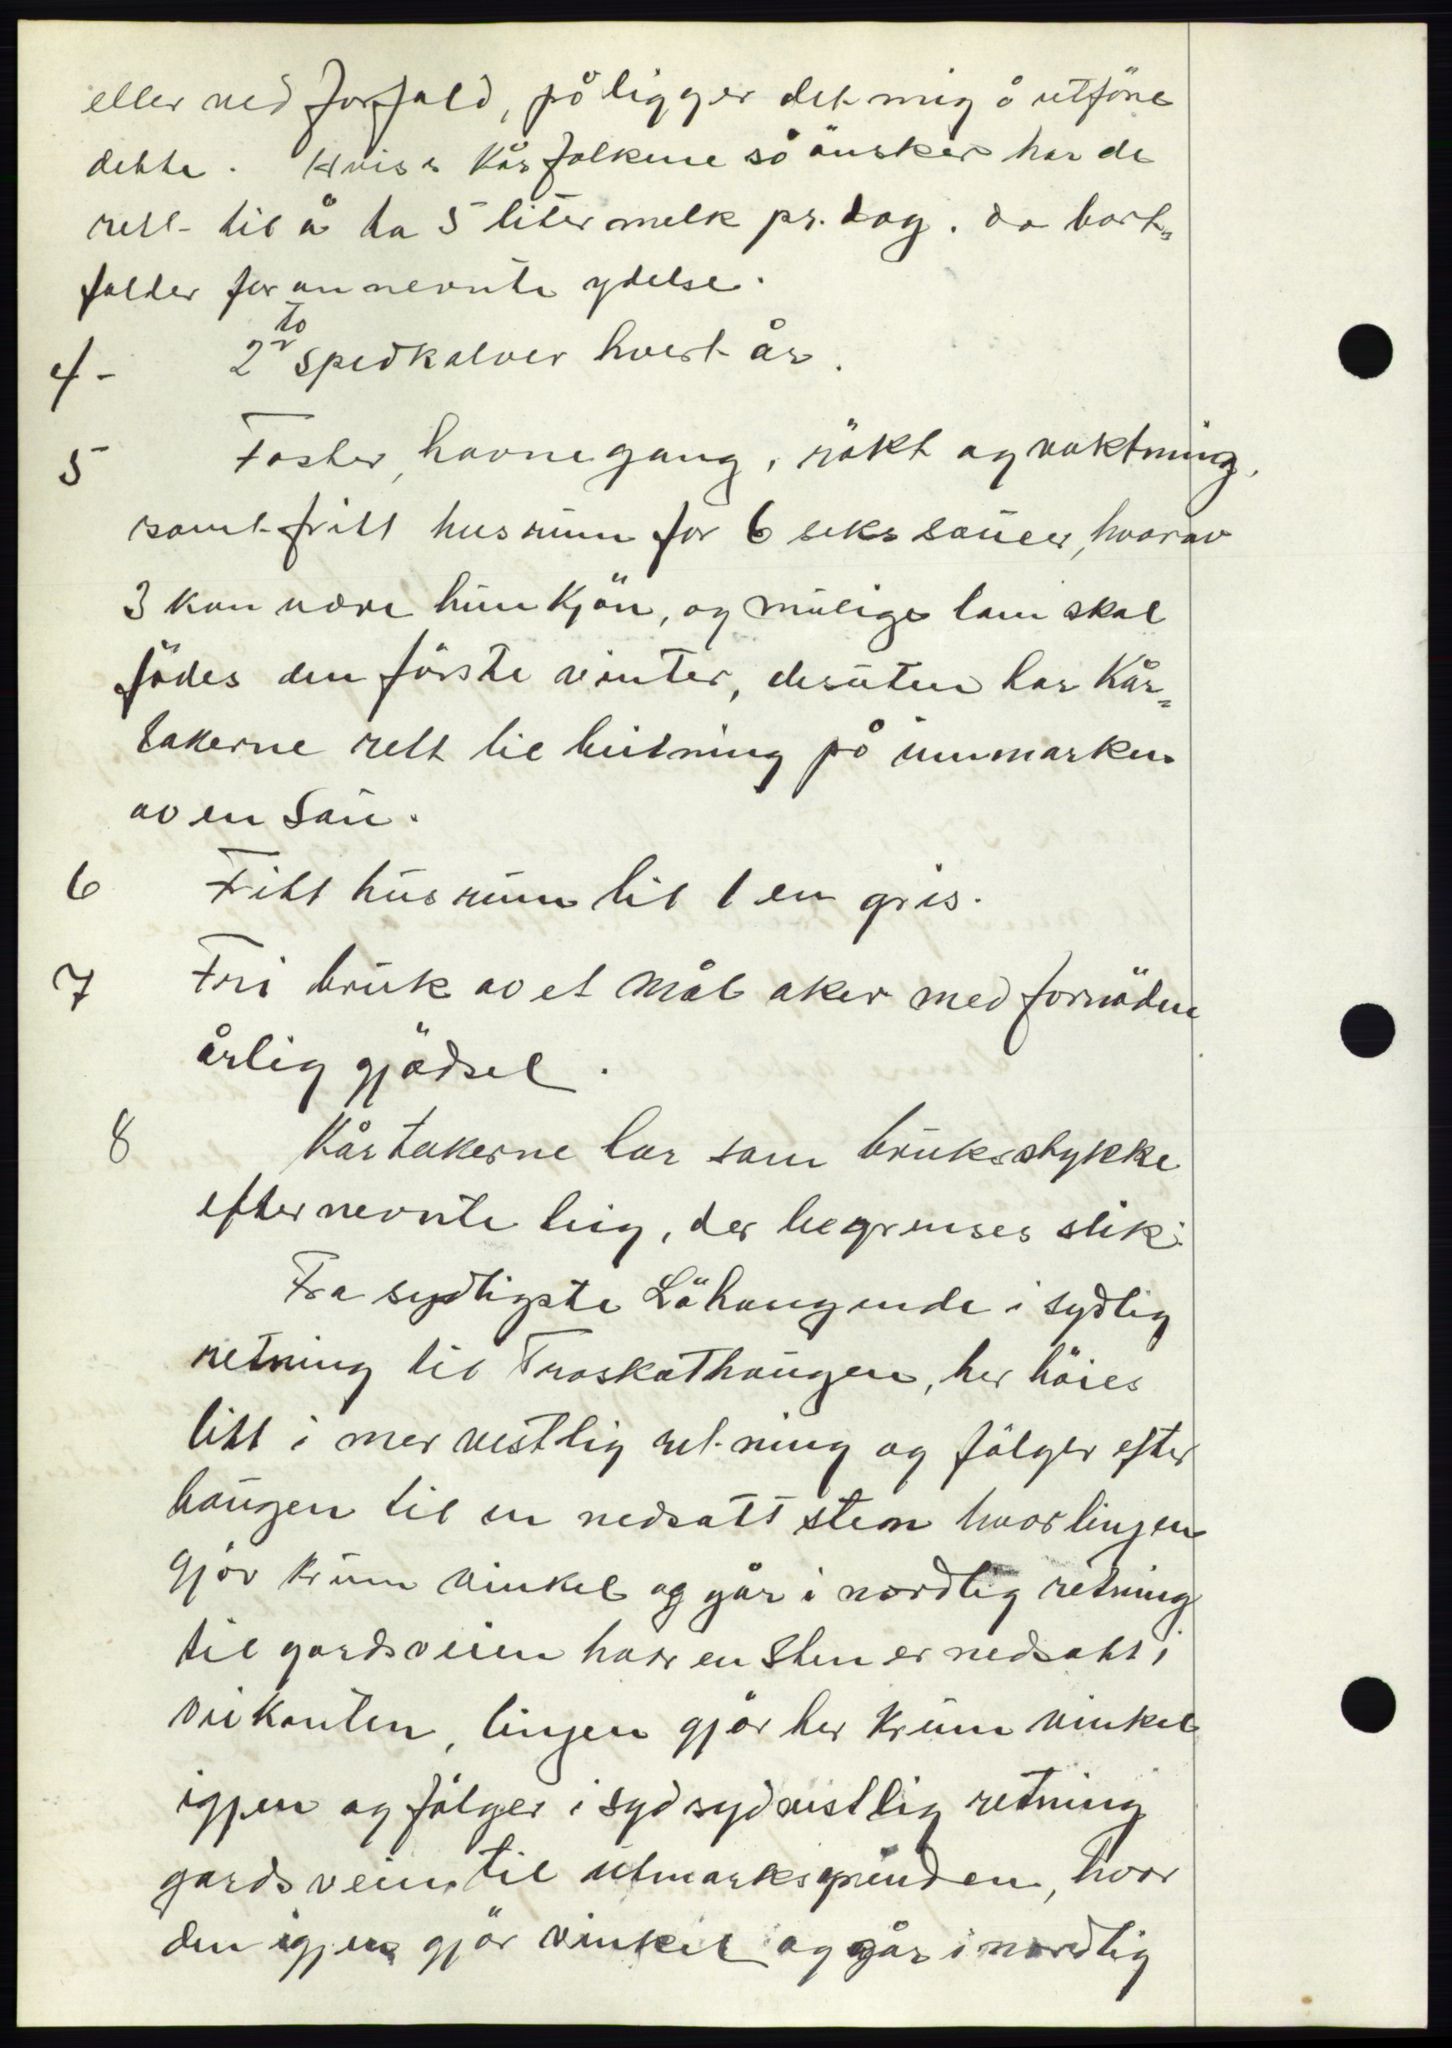 eller ved forfald, påligger det mig å utföre
dette. Hviss kårfolkene så önsker har de
rett til å ta 5 liter melk pr. dag. da bort=
falder forannevnte ydelse.
4- 2 to spedkalver hvert år.
5 Foster, havnegang, rökt og voktning,
samt fritt husrum for 6 seks sauer, hvorav
3 kan være hunkjön, og mulige lam skal
födes den förste vinter, desuten har kår=
takerne rett til beitning på innmarken
av en sau.
6 Fritt husrum til 1 en gris.
7 Fri bruk av et mål aker med fornöden
årlig gjödsel.
8 Kårtakerne har som bruksstykke
efternevnte teig, der begrenses slik:
Fra sydligste Löhaugende i sydlig
retning til Traskathaugen, her höies
litt i mer vestlig retning og fölger efter
haugen til en nedsatt sten hvor linjen
gjör krum vinkel og går i nordlig retning
til gardsveien hvor en sten er nedsatt i
veikanten, linjen gjör her krum vinkel
igjen og fölger i sydsydvestlig retning
gardsveien til utmarksgrinden, hvor
den igjen gjör vinkel og går i nordlig